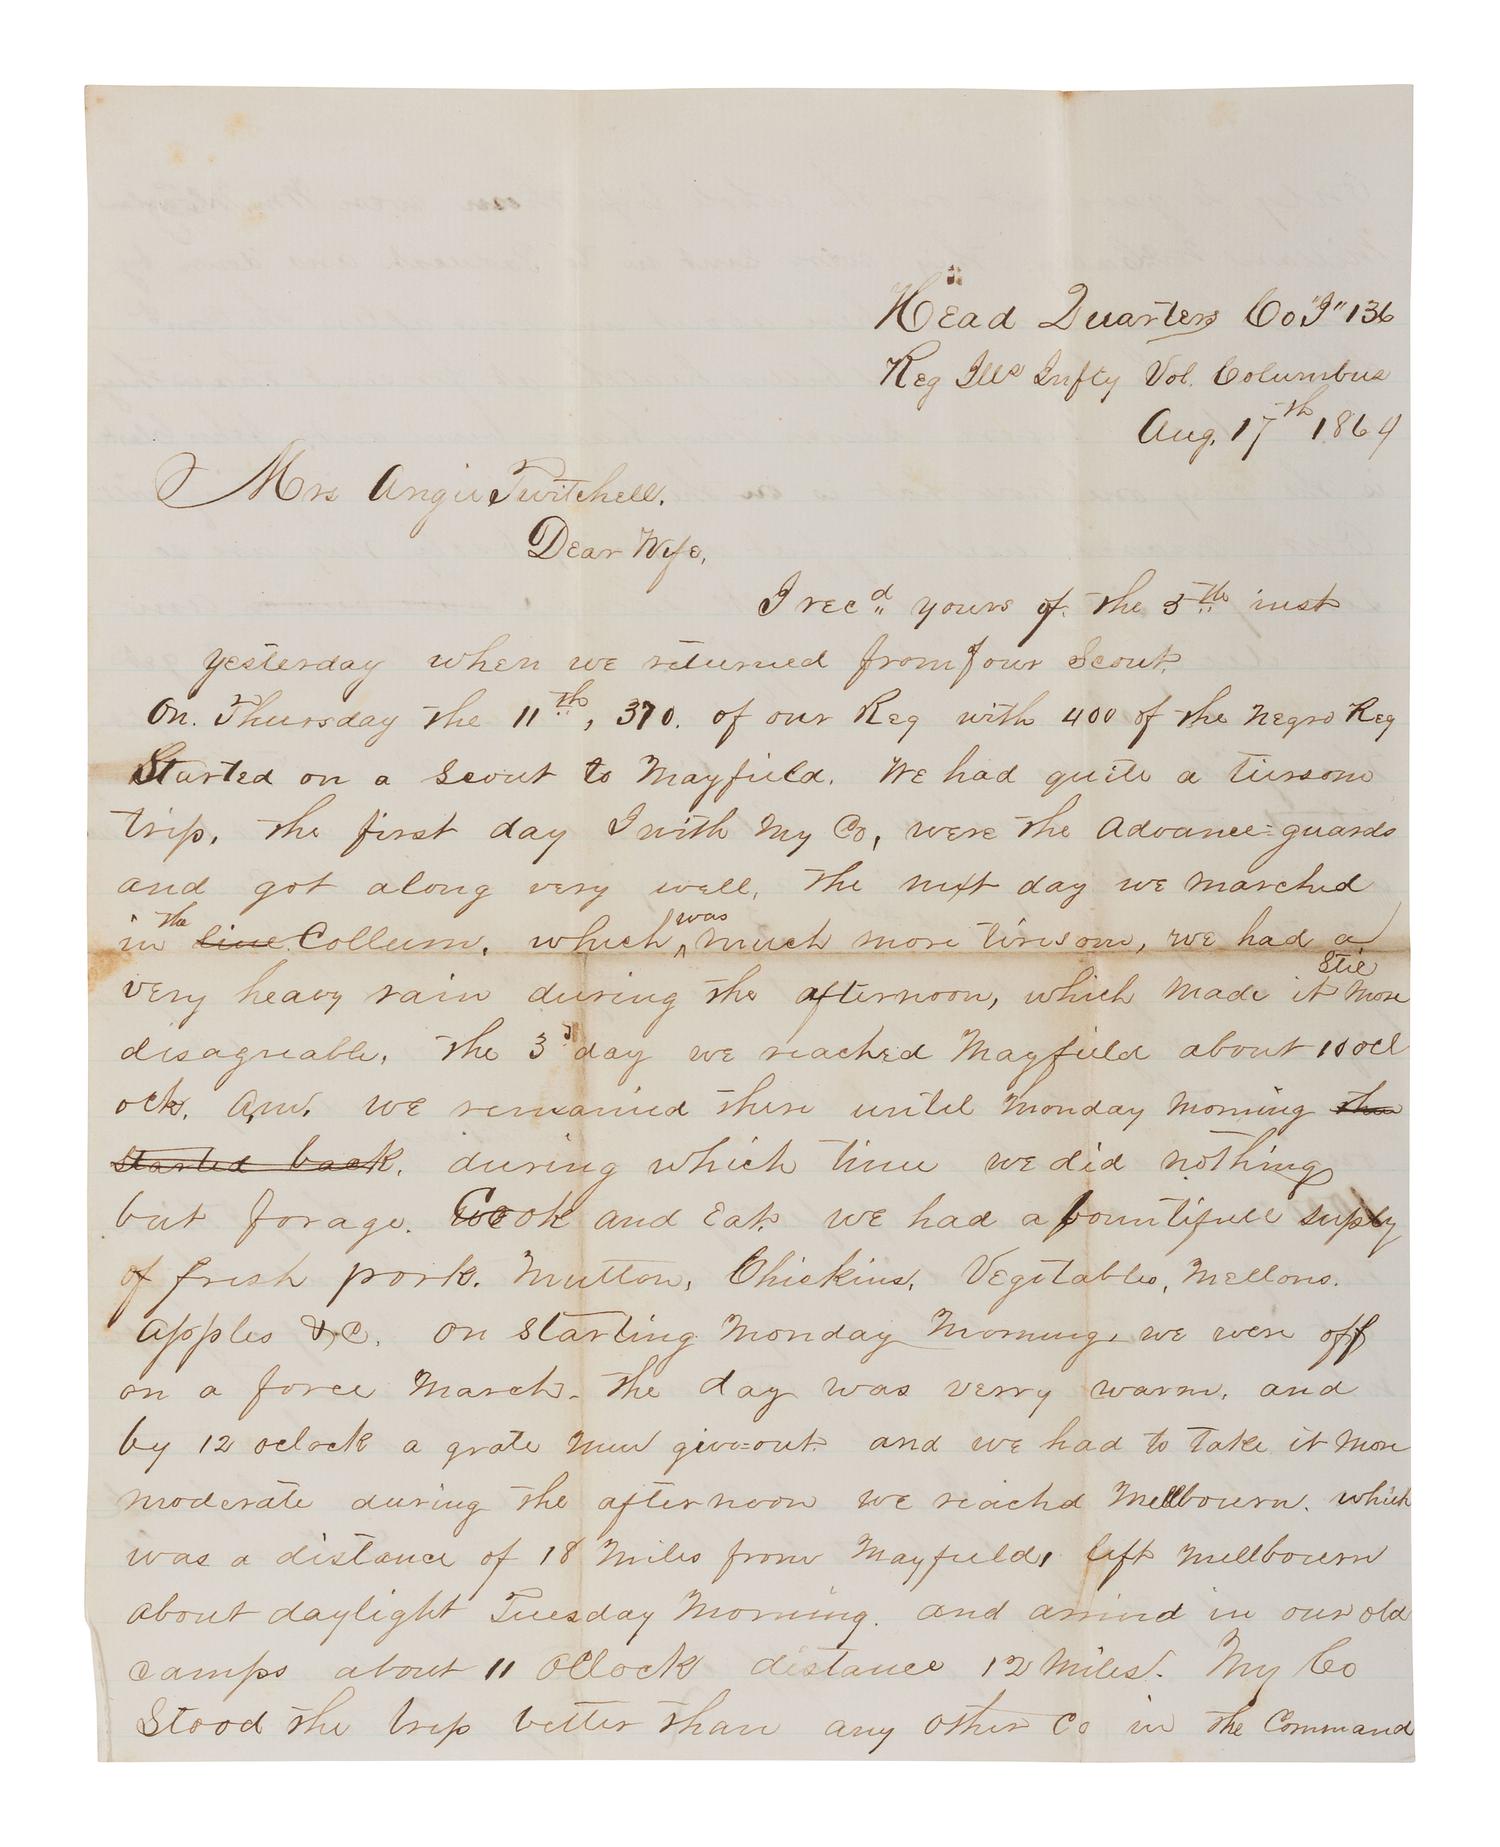 Head Quarters Co "I" 136
Reg Ills Infty Vol. Columbus
Aug. 17th 1864
Mrs Angie Twitchell.
Dear Wife,
I recd yours of the 5th inst
yesterday when we returned from our Scout.
On. Thursday the 11th, 370. of our Reg with 400 of the Negro Reg
Started on a Scout to Mayfield. We had quite a tiersom
trip, the first day I with My Co, were the Advance=guards
and got along very well, the next day we marched
in the line Collum, which was much more tiresom, we had a
very heavy rain during the afternoon, which made it Stil More
disagreable, the 3d day we reached Mayfield about 10 ocl
ock. A,m. we remained there until Monday Morning then
started back. during which time we did nothing
but forage. Cook and Eat. we had a bountifull suply
of fresh pork. Mutton, Chickins, Vegitables, Mellons.
Apples &C. On starting Monday Morning, we were off
on a force March. The day was verry warm, and
by 12 oclock a grate Men give=out and we had to take it More
moderate during the afternoon we reachd Mellbourn. which
was a distance of 18 Miles from Mayfield, left Mellbourn
about daylight Tuesday Morning. and arrived in our old
camps about 11 OClock distance 12 Miles. My Co
Stood the trip better than any other Co in the Command